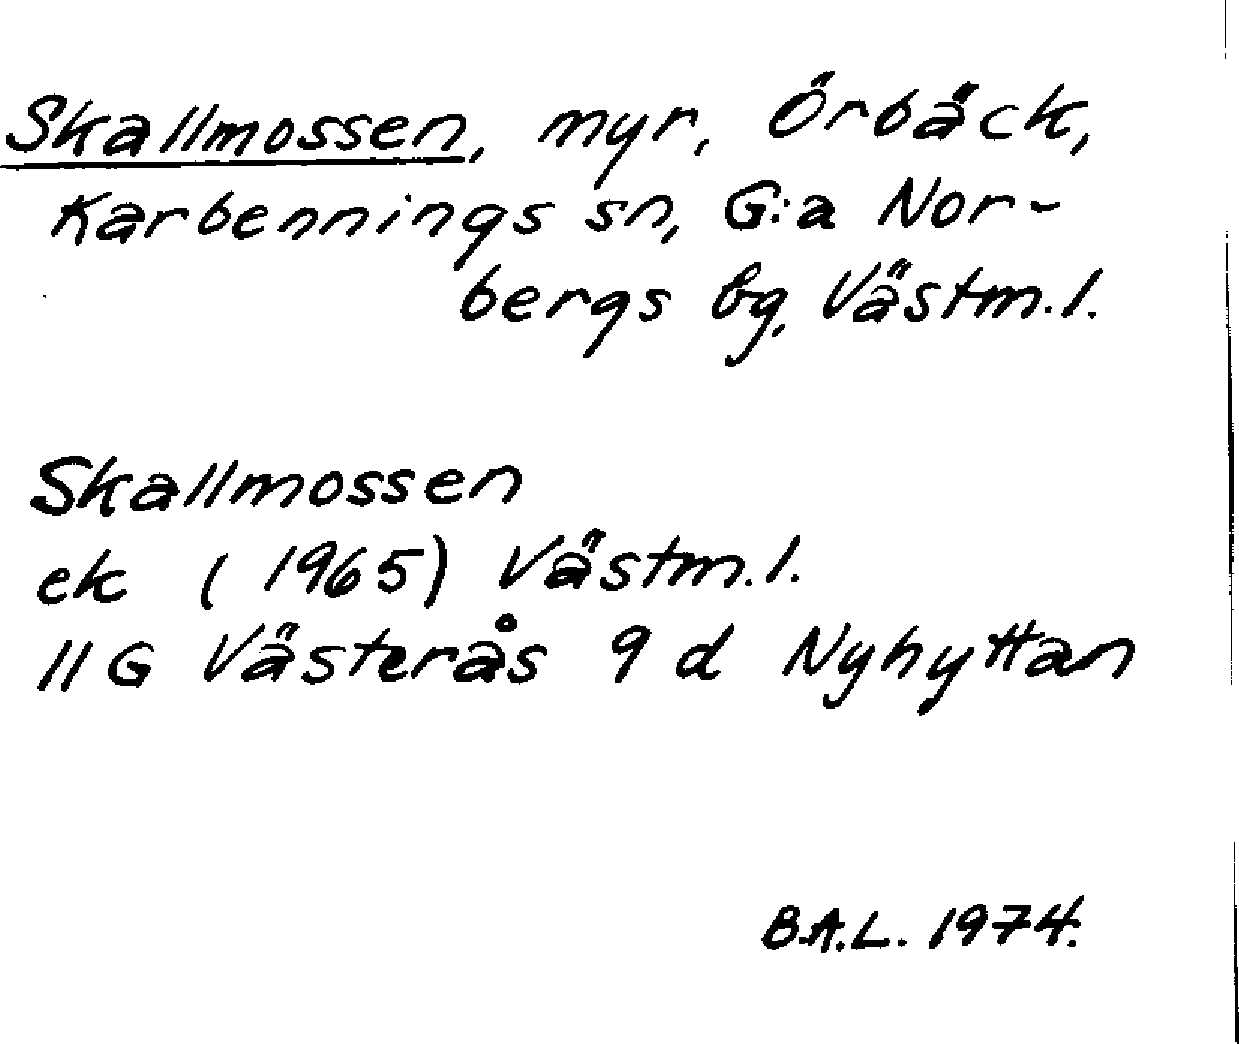 Skallmossen, myr, Örbäck,
Karbennings sn, G:a Nor-
bergs bg, Västm.l.
Skallmossen
ek (1965) Västm.l.
11G Västerås 9d Nyhyttan
B.A.L. 1974.